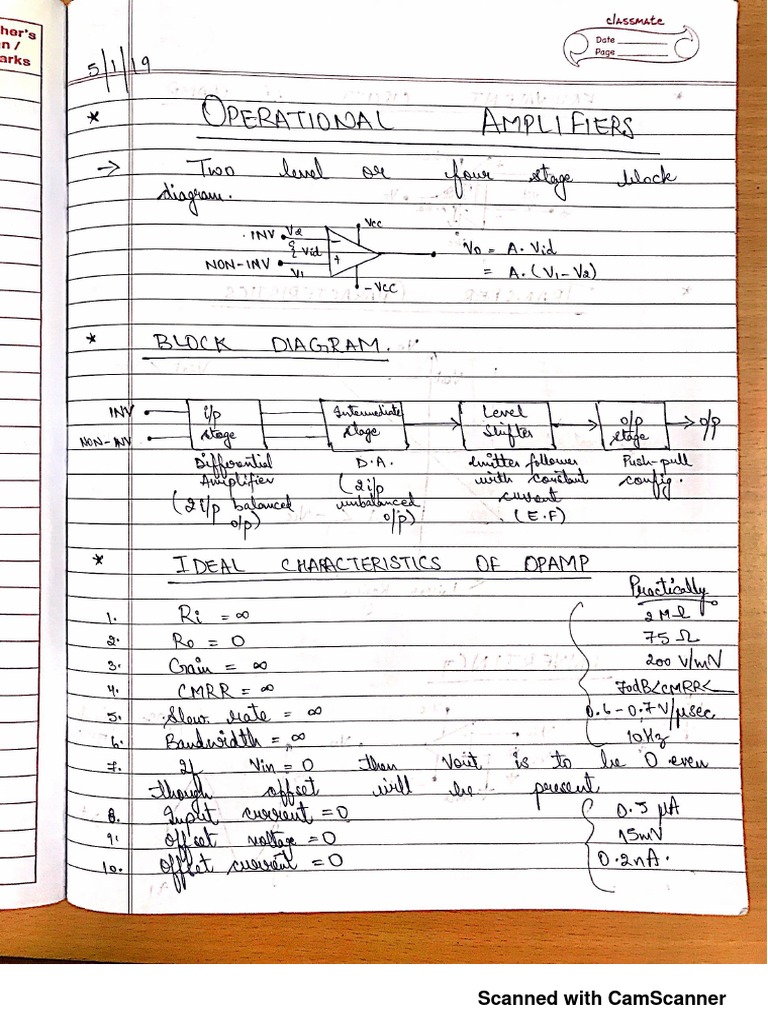 her's
n /
arks
classmate
Date
Page
5/1/19
* OPERATIONAL AMPLIFIERS
→ Two level or four stage block
diagram.
INV V2
Vid
NON-INV V1
- +
Vcc
-Vcc
Vo = A. Vid
= A. (V1-V2)
* BLOCK DIAGRAM.
INV
NON-INV
i/p
stage
Intermediate
stage
Level
Shifter
o/p
stage
→ o/p
Differential
Amplifier
(2 i/p balanced
o/p)
D.A.
(2 i/p
unbalanced
o/p)
emitter follower
with constant
current
(E.F)
Push-pull
config.
* IDEAL CHARACTERISTICS OF OPAMP
Practically
1. Ri = ∞ 2 MΩ
2. Ro = 0 75 Ω
3. Gain = ∞ 200 V/mV
4. CMRR = ∞ 70dB<CMRR<
5. Slew rate = ∞ 0.6-0.7V/μsec
6. Bandwidth = ∞ 10Hz
7. If Vin = 0 then Vout is to be 0 even
though offset will be present
8. Input current = 0 0.5 μA
9. Offset voltage = 0 15mV
10. Offset current = 0 0.2nA.
Scanned with CamScanner